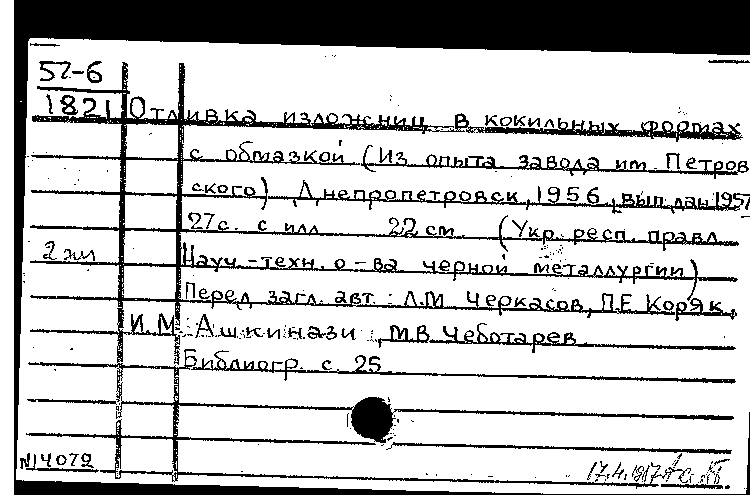 57-6
1821 Отливка изложниц в кокильных формах
с обмазкой (Из опыта завода им. Петров
ского) Днепропетровск, 1956, вып дан 1957
27с. с илл 22 см. (Укр. респ. правл
2 экз Науч.-техн. о-ва черной металлургии)
Перед загл. авт: Л.М. Черкасов, П.Е. Коряк,
И.М. Ашкинази, М.В. Чеботарев
Библиогр. с. 25
N14072
17.4.